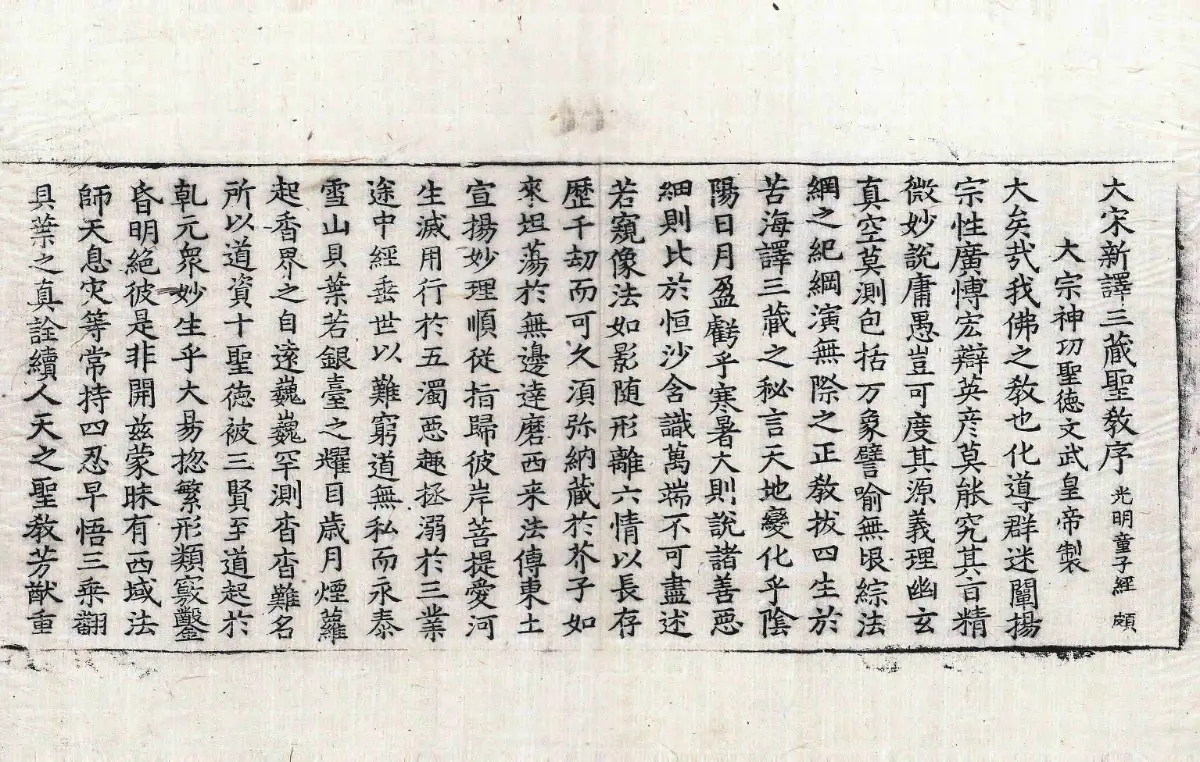 大宋新譯三藏聖教序 光明童子經 頗
大宗神功聖德文武皇帝製
大矣㢤我佛之教也化導群迷闡揚
宗性廣愽宏辯英彦莫能究其旨精
微妙說庸愚豈可度其源義理幽玄
真空莫測包括万象譬喻無垠綜法
綱之紀綱演無際之正教拔四生於
苦海譯三藏之秘言天地變化乎陰
陽日月盈虧乎寒暑大則說諸善惡
細則比於恒沙含識萬端不可盡述
若窺像法如影随形離六情以長存
歷千劫而可久湏弥納藏於芥子如
來坦蕩於無邊達磨西来法傳東土
宣揚妙理順從指歸彼岸菩提愛河
生滅用行於五濁惡趣拯溺於三業
途中經垂世以難窮道無私而永泰
雪山貝葉若銀臺之耀目歲月煙蘿
起香界之自遠巍巍罕測杳杳難名
所以道資十聖德被三賢至道起於
乹元衆妙生乎大易揔繁形類竅鑿
昏明絕彼是非開茲蒙昧有西域法
師天息灾等常持四忍早悟三乘翻
貝葉之真詮續人天之聖教芳猷重